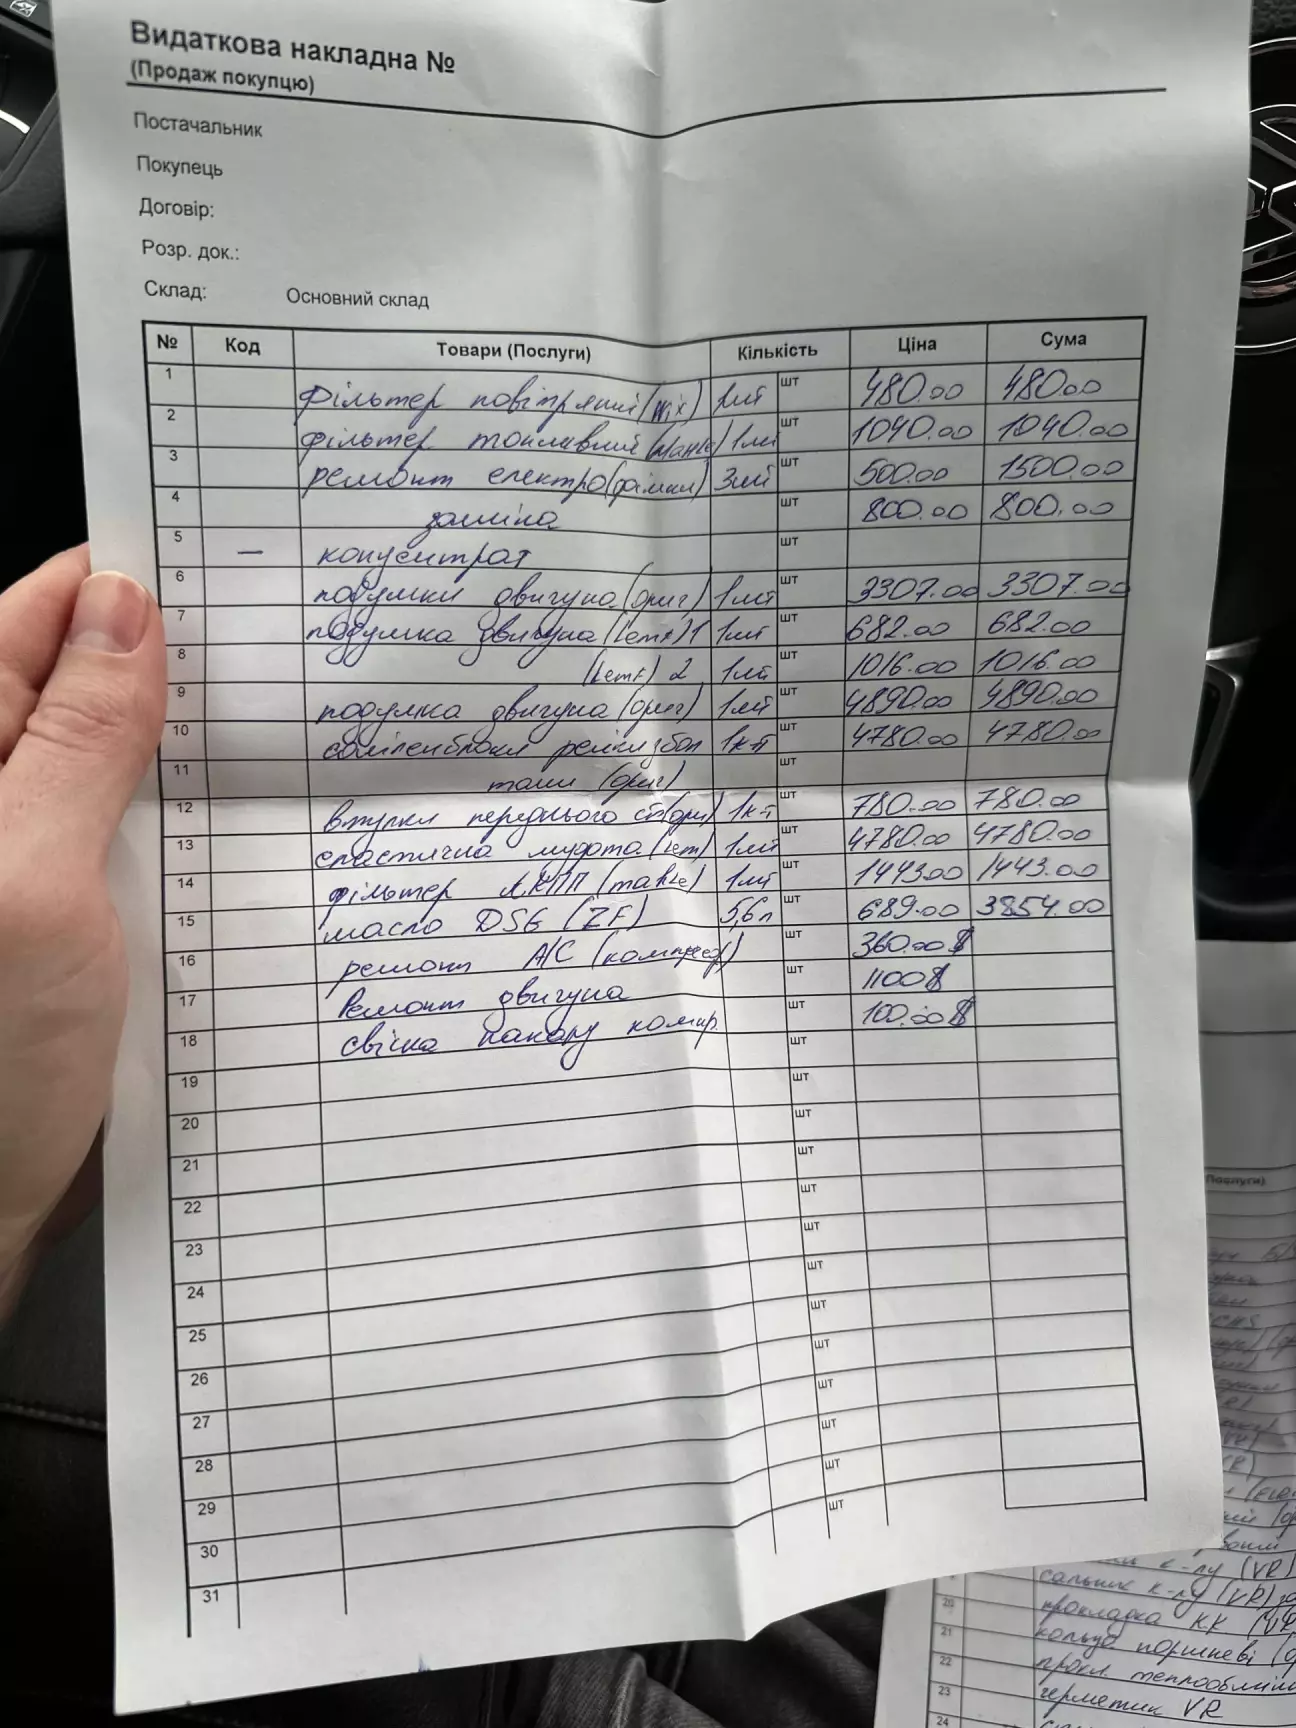 Видаткова накладна №
(Продаж покупцю)
Постачальник
Покупець
Договір:
Розр. док.:
Склад: Основний склад
№ Код Товари (Послуги) Кількість Ціна Сума
1 Фільтер повітряний (Wix) 1шт шт 480.00 480.00
2 фільтер топливний (Mahle) 1шт шт 1040.00 1040.00
3 ремонт електро(фішки) 3шт шт 500.00 1500.00
4 заміна шт 800.00 800.00
5 — концентрат шт
6 подушки двигуна (ориг) 1шт шт 3307.00 3307.00
7 подушка двигуна (Lemf) 1 1шт шт 682.00 682.00
8 (Lemf) 2 1шт шт 1016.00 1016.00
9 подушка двигуна (ориг) 1шт шт 4890.00 4890.00
10 сайленблоки рейки з бол 1к-т шт 4780.00 4780.00
11 тами (ориг) шт
12 втулки переднього ст(ори) 1к-т шт 780.00 780.00
13 еластична муфта (Lem) 1шт шт 4780.00 4780.00
14 фільтер АКПП (mahle) 1шт шт 1443.00 1443.00
15 масло DSG (ZF) 5,6л шт 689.00 3854.00
16 ремонт A/C (компресор) шт 360.00$
17 Ремонт двигуна шт 1100$
18 свічка накалу шт 100.00$
19 шт
20 шт
21 шт
22 шт
23 шт
24 шт
25 шт
26 шт
27 шт
28 шт
29 шт
30 шт
31 шт
Послуги)
к-лу (VR)
сальник к-лу (VR)
20 прокладка КК
21 кольца поршневі
22 прокл. теплообмін
23 герметик VR
24